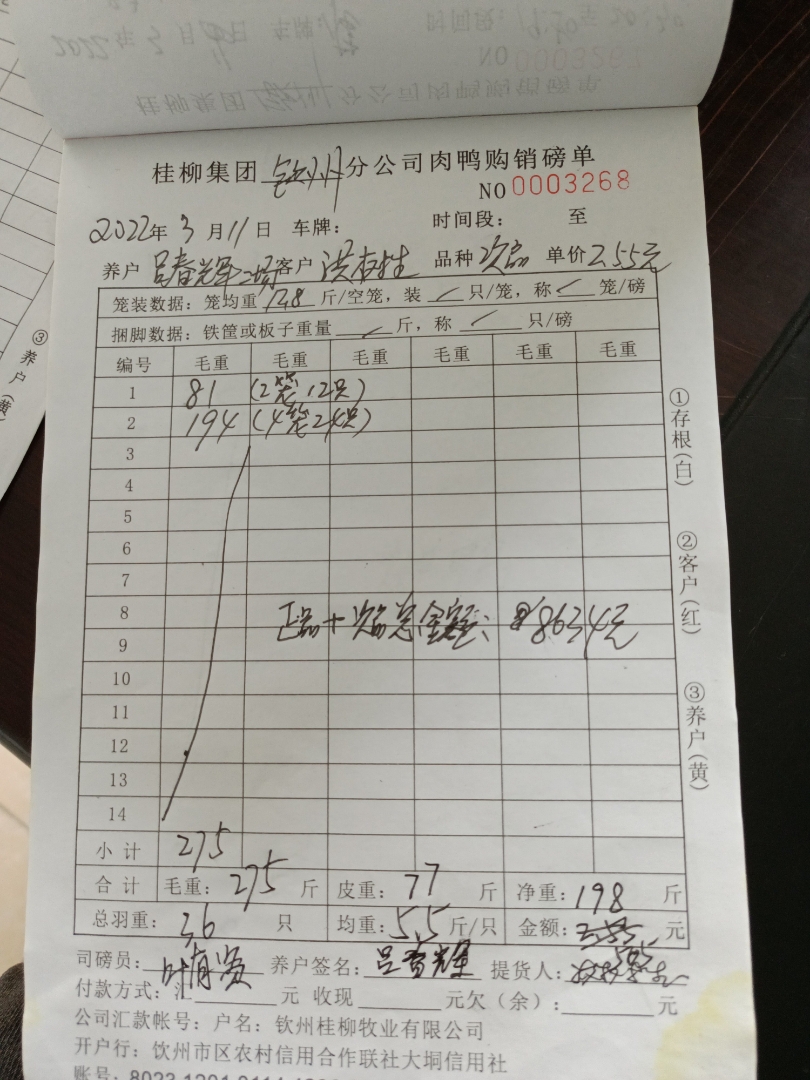 2022年3月 日 车牌:
时间段:
NO 0003267
桂柳集团 钦州 分公司肉鸭购销磅单
桂柳集团 钦州 分公司肉鸭购销磅单
NO 0003268
2022年3月11日 车牌: 时间段: 至
养户 吕春辉二场 客户 洪 品种 次品 单价2.55元
笼装数据:笼均重 12.8 斤/空笼,装 / 只/笼,称 / 笼/磅
捆脚数据:铁筐或板子重量 / 斤,称 / 只/磅
编号 毛重 毛重 毛重 毛重 毛重 毛重
1 81 (2笼12只)
2 194 (4笼24只)
3
4
5
6
7
8
正品+次品总金额: 8634元
9
10
11
12
13
14
小计 275
合计 毛重:275 斤 皮重:77 斤 净重:198 斤
总羽重:36 只 均重:5.5 斤/只 金额: 505 元
司磅员:叶有贤 养户签名:吕春辉 提货人:
付款方式:汇 元 收现 元欠(余): 元
公司汇款帐号:户名:钦州桂柳牧业有限公司
开户行:钦州市区农村信用合作联社大垌信用社
账号:8023 1201 0114
①存根(白)
②客户(红)
③养户(黄)
③养户(黄)